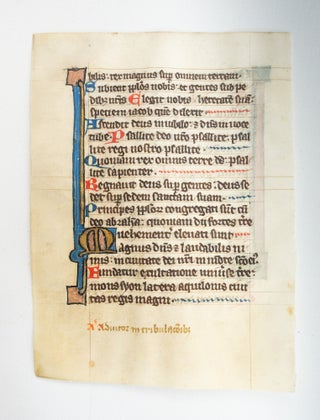 bilis: rex magnus sup omnem terram.
Subiecit pplos nobis: et gentes sub pe
dib; nris. Elegit nobis hereditatē suā:
speciem iacob quē dilexit.
Ascendit deus in iubilo: & dñs in uoce
tube. Psallite deo nrō psallite: psal
lite regi nostro psallite.
Quoniam rex omnis terre ds: psal
lite sapienter.
Regnauit deus sup gentes: deus se
det sup sedem sanctam suam.
Principes pplor congregati sūt cū
deo abraham: quoniam dii fortes tre
uehementer eleuati sunt.
Magnus dñs & laudabilis ni
mis: in ciuitate dei nrī in monte scō eiꝰ.
Fundatur exultatione uniuse tre:
mons syon latera aquilonis ciui
tas regis magni.
Aꝰ Adiutor in tribulacōibꝰ